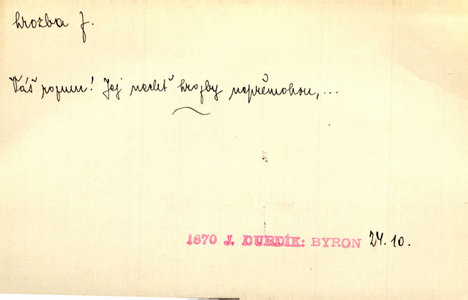 hrozba f.
Váš rozum! Jej nechť hrozby nepřemohou,...
1870 J. DURDÍK: BYRON 24.10.